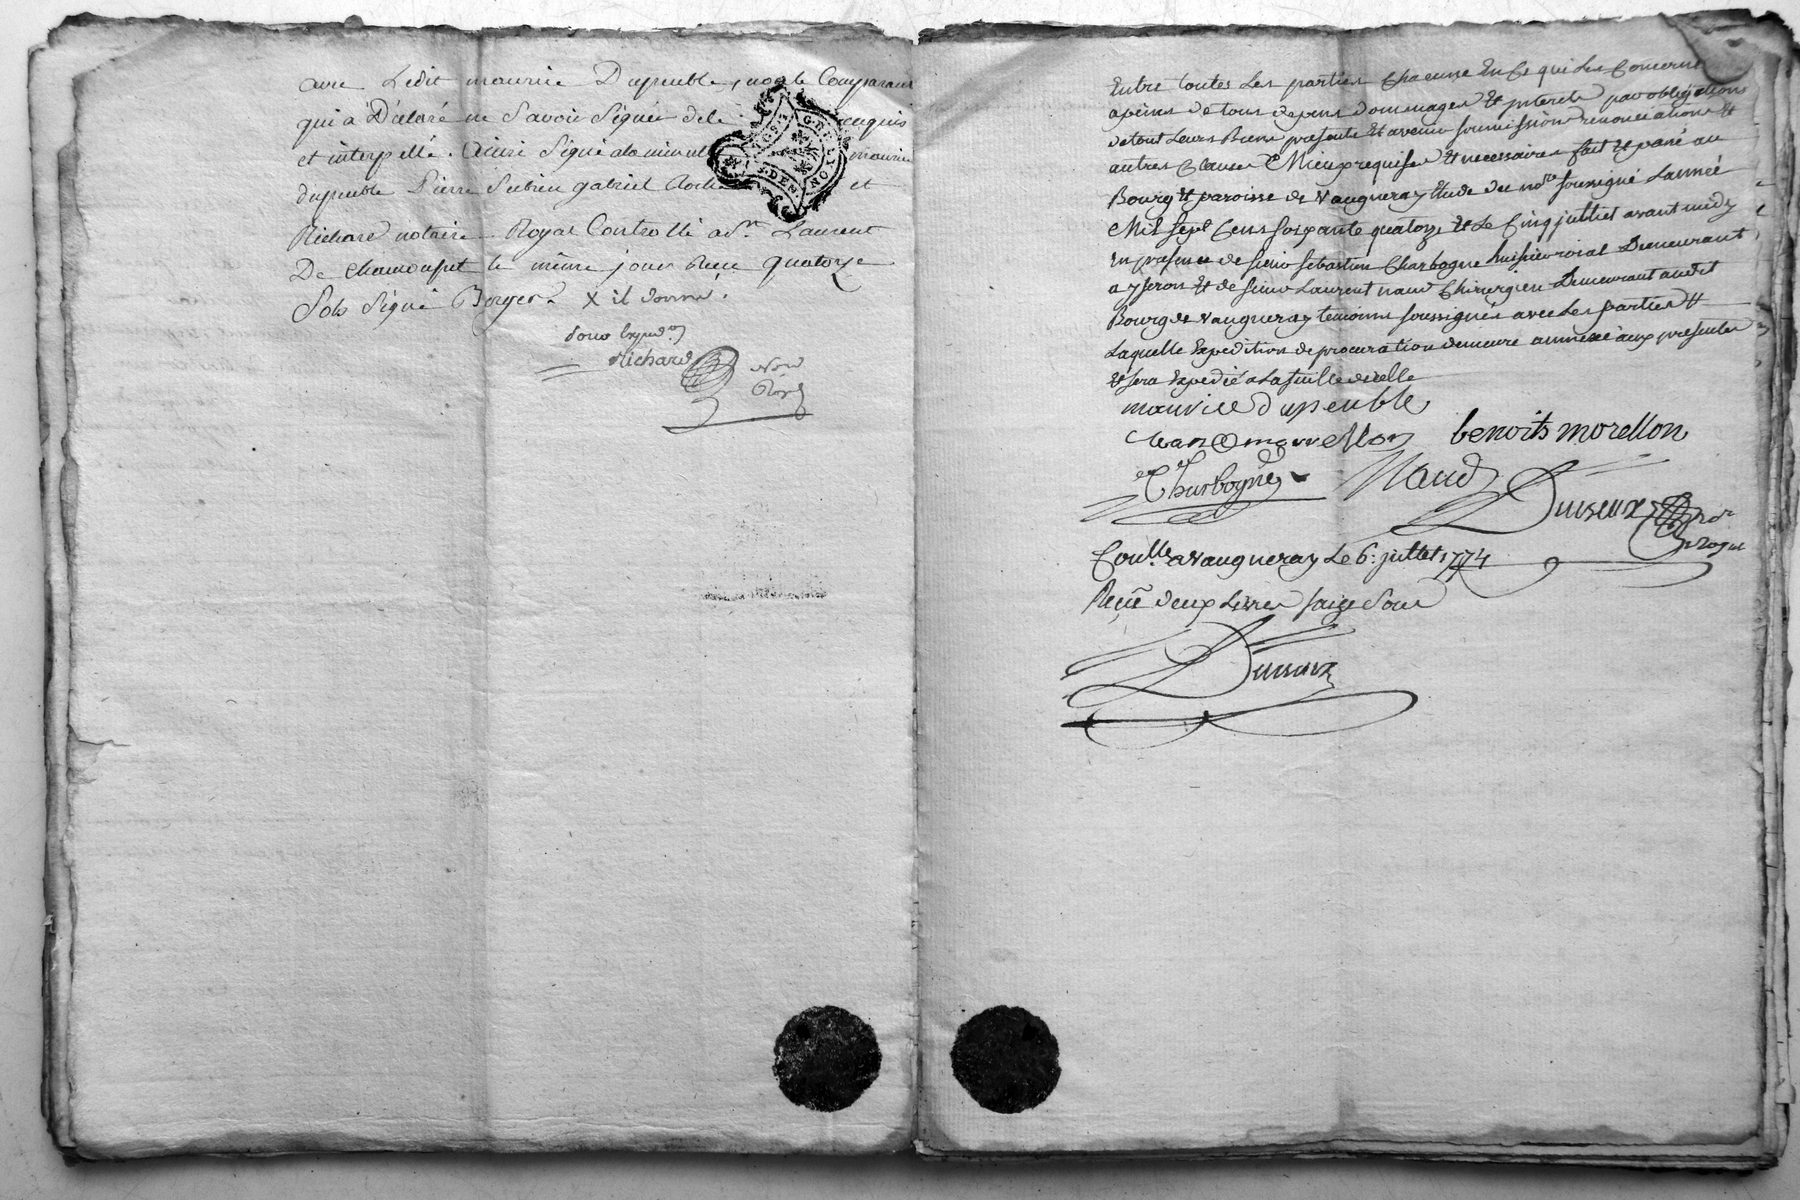 avec Ledit maurice Dupeuble, non le Comparant
qui à Déclaré ne Savoir Signer dele enquis
et interpellé. Ainsi Signé a la minut maurice
dupeuble Pierre Subrin gabriel Roche et
Richard notaire Royal Controllé a St. Laurent
De chamousset le même jour Reçu quatorze
Sols Signé Boyer. X il donné.
pour Expedon
Richard
Nore
Royl
GEN DE LYON
Entre toutes Les parties Chacune En Ce qui Les Concerne
apeine de tous depens dommages Et jnterets par obligations
de tout Leurs Biens presents Et avenir soumissions renonciations Et
autres Clauses Mieux requises Et necessaires fait Et passé au
Bourg Et paroisse de Vaugneray Etude du nore soussigné Lannée
Mil sept Cens soixante quatorze Et Le Cinq juillet avant midy
En presence de sieur sebastien Charbogne huissier roial Demeurant
a yseron Et de sieur Laurent naud Chirurgien Demeurant audit
Bourg de Vaugneray temoins soussignés avec Les parties Et
Laquelle Expedition de procuration demeure annexée aux presentes
Et sera Expedié a La suitte dicelle
maurice dupeuble
Jean morrellon benoits morellon
Charbogne Naud
Duiseux nore
Royal
Coullé a Vaugneray Le 6: juillet 1774
Reçu deux Livres saize sous
Duiseux